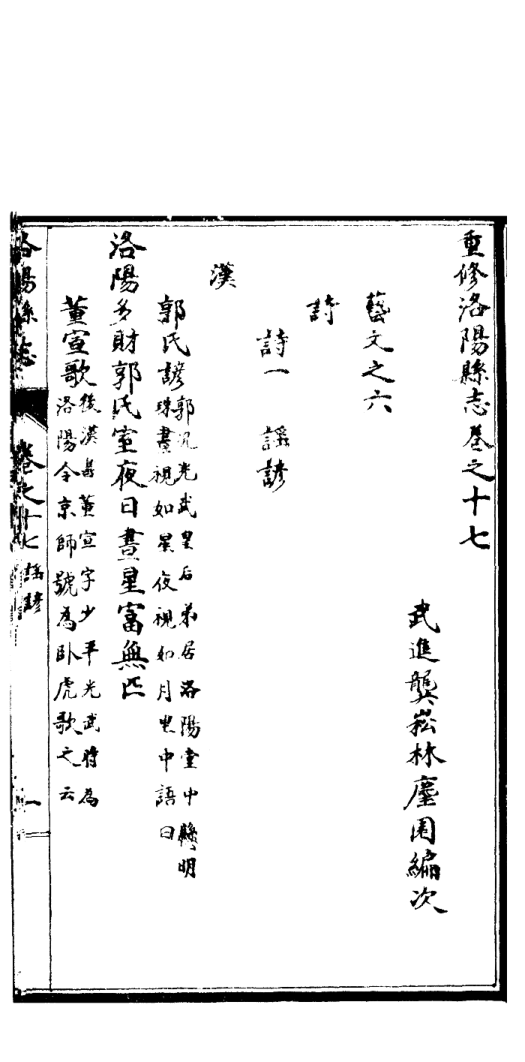 重修洛陽縣志卷之十七
武進龔崧林麈園編次
藝文之六
詩
詩一　謠諺
漢
郭氏諺郭況光武皇后弟居洛陽堂中懸明
珠晝視如星夜視如月里中語曰
洛陽多財郭氏室夜日晝星富無匹
董宣歌後漢書董宣字少平光武時為
洛陽令京師號為臥虎歌之云
洛陽縣志
卷之十七謠諺
一